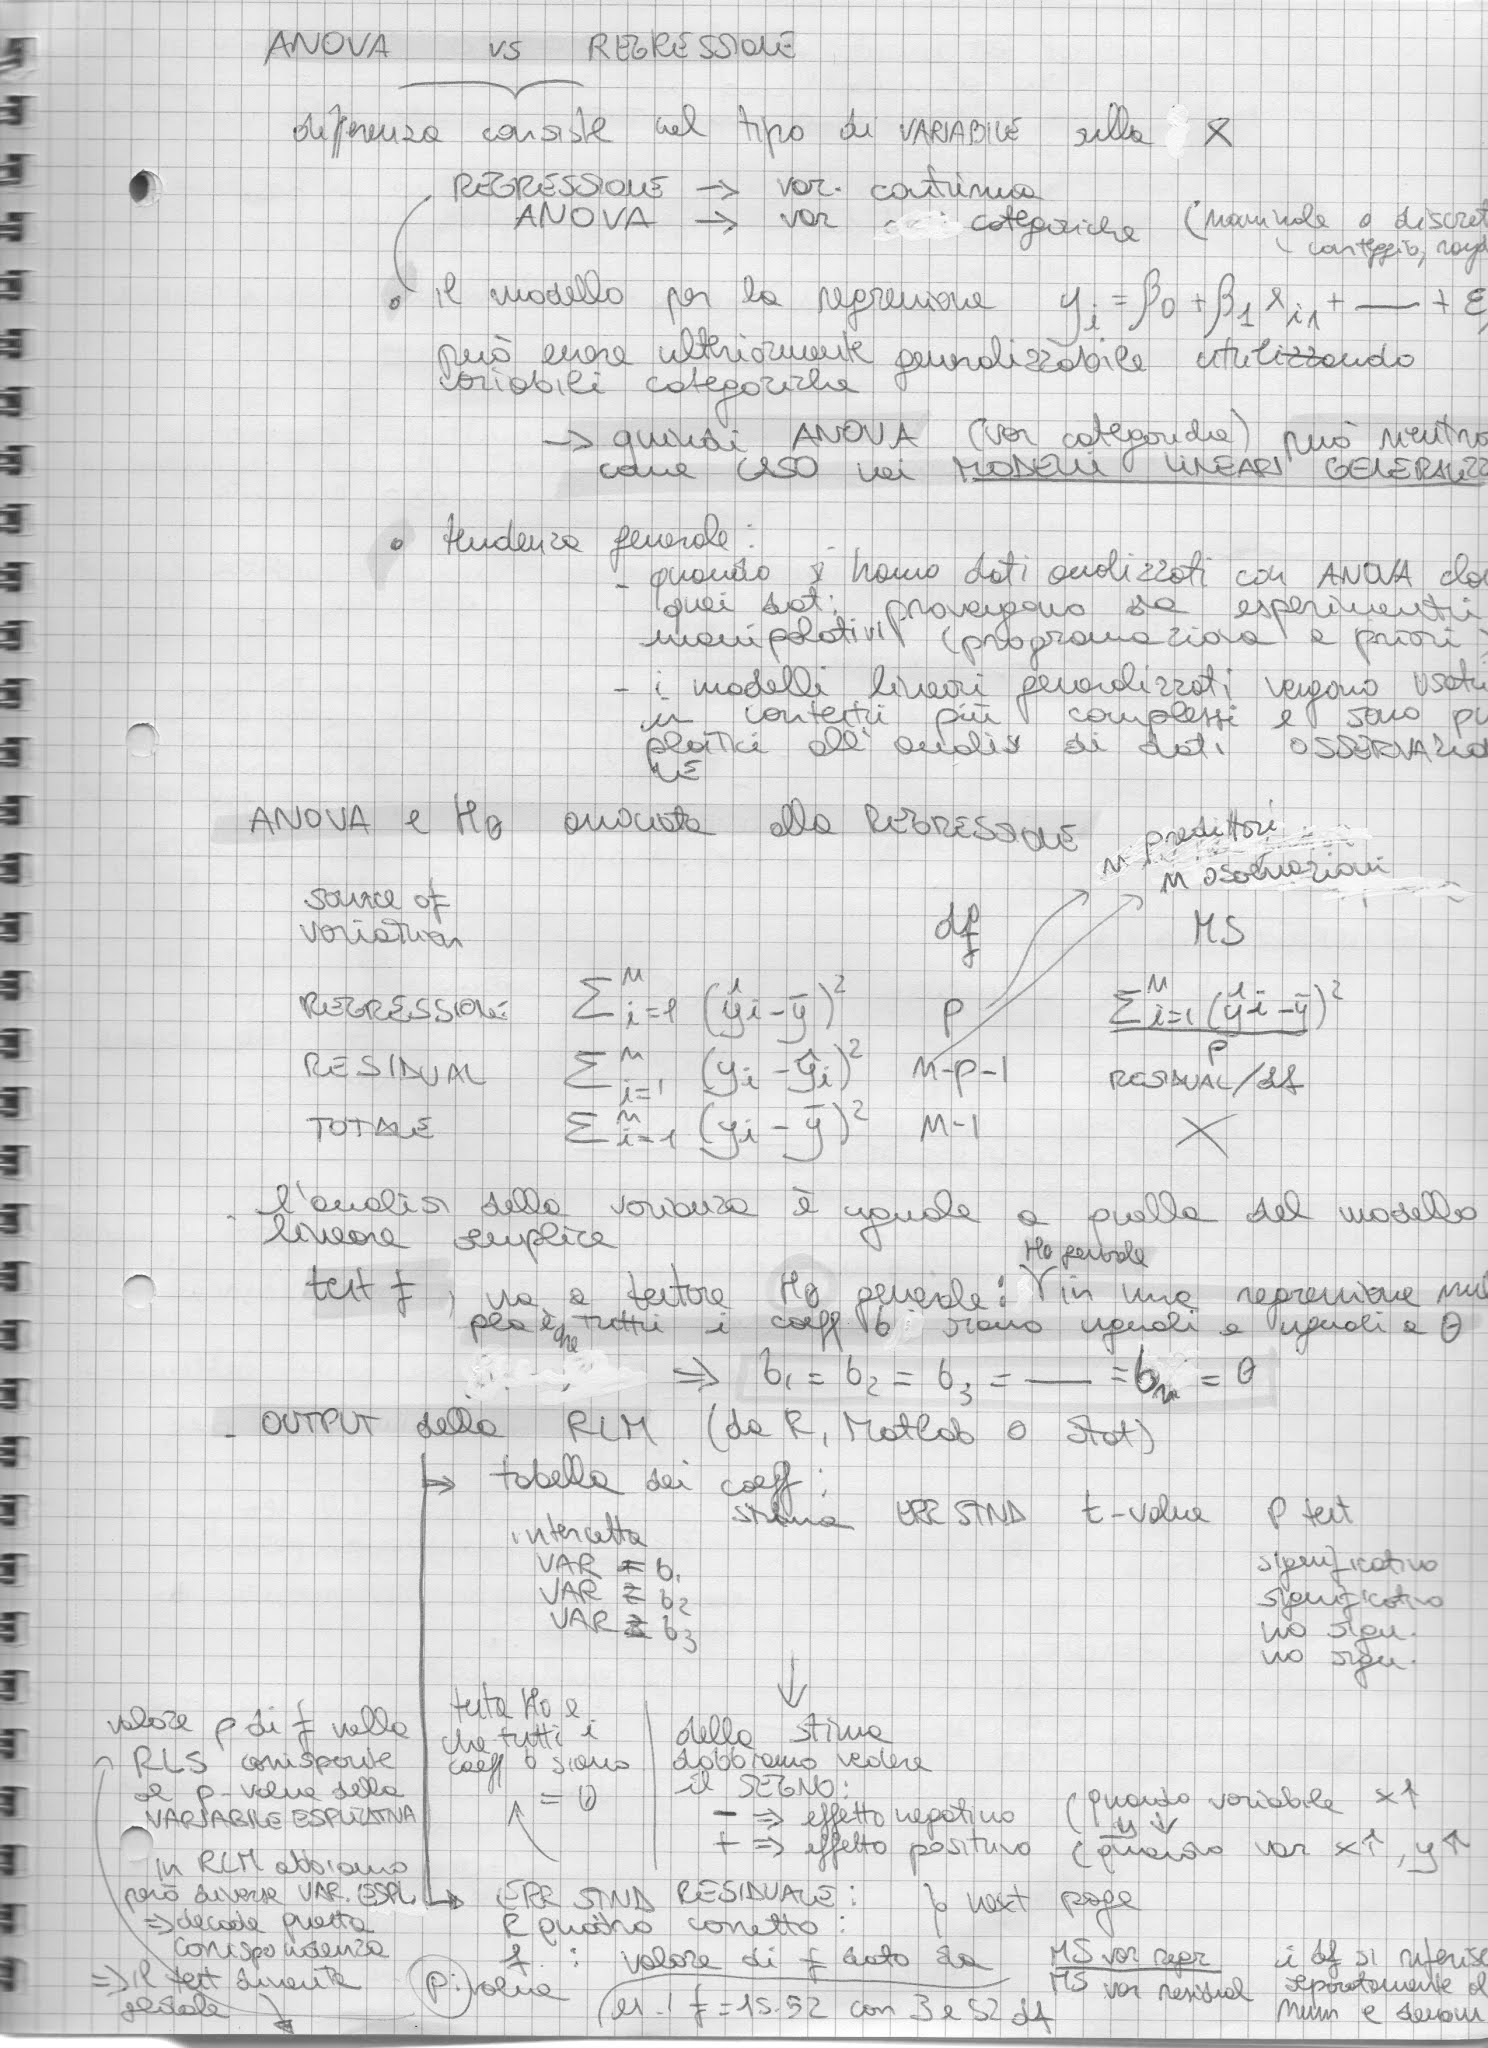 ANOVA vs REGRESSIONE
differenza consiste nel tipo di VARIABILE sulla X
REGRESSIONE → var. continua
ANOVA → var categoriche (nominale o discret
(conteggio, rang
• il modello per la regressione yi = β0 + β1 xi1 + — + ε
può essere ulteriormente generalizzabile utilizzando
variabili categoriche
→ quindi ANOVA (var categorica) può rientra
come CASO nei MODELLI LINEARI GENERALIZZ
• tendenza generale:
- quando si hanno dati analizzati con ANOVA
quei dati provengono da esperimenti
manipolativi (programmazione a priori)
- i modelli lineari generalizzati vengono usati
in contesti più complessi e sono più
plastici all'analisi di dati OSSERVAZIO
NE
ANOVA e H0 associata alla REGRESSIONE
n predittori
n osservazioni
source of
variation df MS
REGRESSIONE Σ i=1 n (ŷi - ȳ)² p Σ i=1 n (ŷi - ȳ)² / p
RESIDUAL Σ i=1 n (yi - ŷi)² n-p-1 RESIDUAL/df
TOTALE Σ i=1 n (yi - ȳ)² n-1 X
- l'analisi della varianza è uguale a quella del modello
lineare semplice
H0 generale
test f, va a testare H0 generale: in una regressione mul
pla è che tutti i coeff b siano uguali e uguali a 0
⇒ b1 = b2 = b3 = — = bn = 0
- OUTPUT della RLM (da R, Matlab o Stat)
→ tabella dei coeff:
stima ERR STND t-value P test
intercetta
VAR 1 b1 significativo
VAR 2 b2 significativo
VAR 3 b3 no sign.
no sign.
valore p di f nella
RLS corrisponde
al p-value della
VARIABILE ESPLICATIVA
in RLM abbiamo
però diverse VAR. ESPL
⇒ decade questa
corrispondenza
⇒ il test diventa
globale
testa H0 e
che tutti i
coeff b siano
= 0
della stima
dobbiamo vedere
il SEGNO:
- ⇒ effetto negativo (quando variabile x↑
y↓
+ ⇒ effetto positivo (quando var x↑, y↑
→ ERR STND RESIDUALE: } next page
R quadro corretto:
f : valore di f dato da MS var regr / MS var residual i df si riferisc
separatamente al
num e denom
p: value (es. f = 15.52 con 3 e 52 df